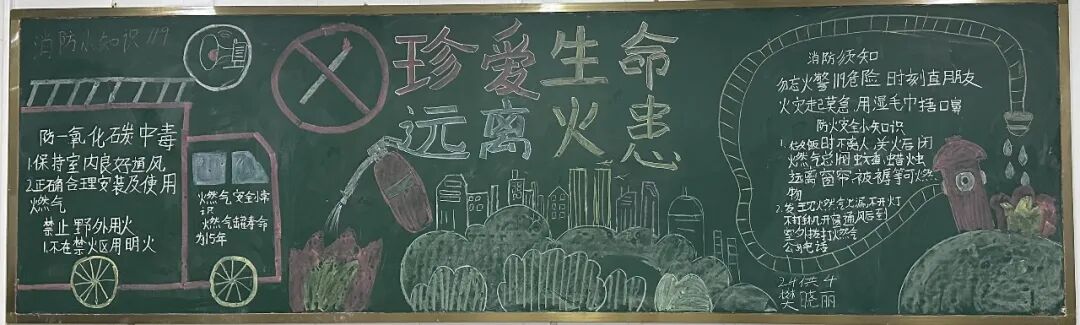 消防小知识 119
防一氧化碳中毒
1.保持室内良好通风
2.正确合理安装及使用
燃气
禁止野外用火
1.不在禁火区用明火
燃气安全小常
识
燃气罐寿命
为15年
珍爱生命
远离火患
消防须知
勿忘火警119危险 时刻直月朋友
火灾起莫急 用湿毛巾捂口鼻
防火安全小知识
1.做饭时不离人 关火后闭
燃气总阀 蚊香、蜡烛
远离窗帘、被褥等可燃
物
2.发现燃气泄漏不开灯
不打手机开窗通风后到
室外拨打燃气
公司电话
24供4
樊晓丽